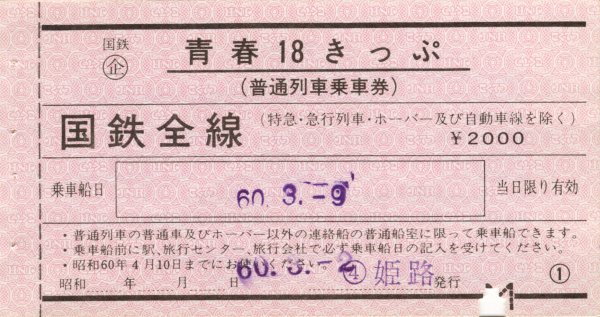 国鉄
企
青春18きっぷ
(普通列車乗車券)
国鉄全線
(特急・急行列車・ホーバー及び自動車線を除く)
¥2000
乗車船日
60.3.-9
当日限り有効
・普通列車の普通車及びホーバー以外の連絡船の普通船室に限って乗車船できます。
・乗車船前に駅、旅行センター、旅行会社で必ず乗車船日の記入を受けてください。
・昭和60年4月10日までにお使いください。
60.3.-2
④姫路
昭和 年 月 日 発行
①